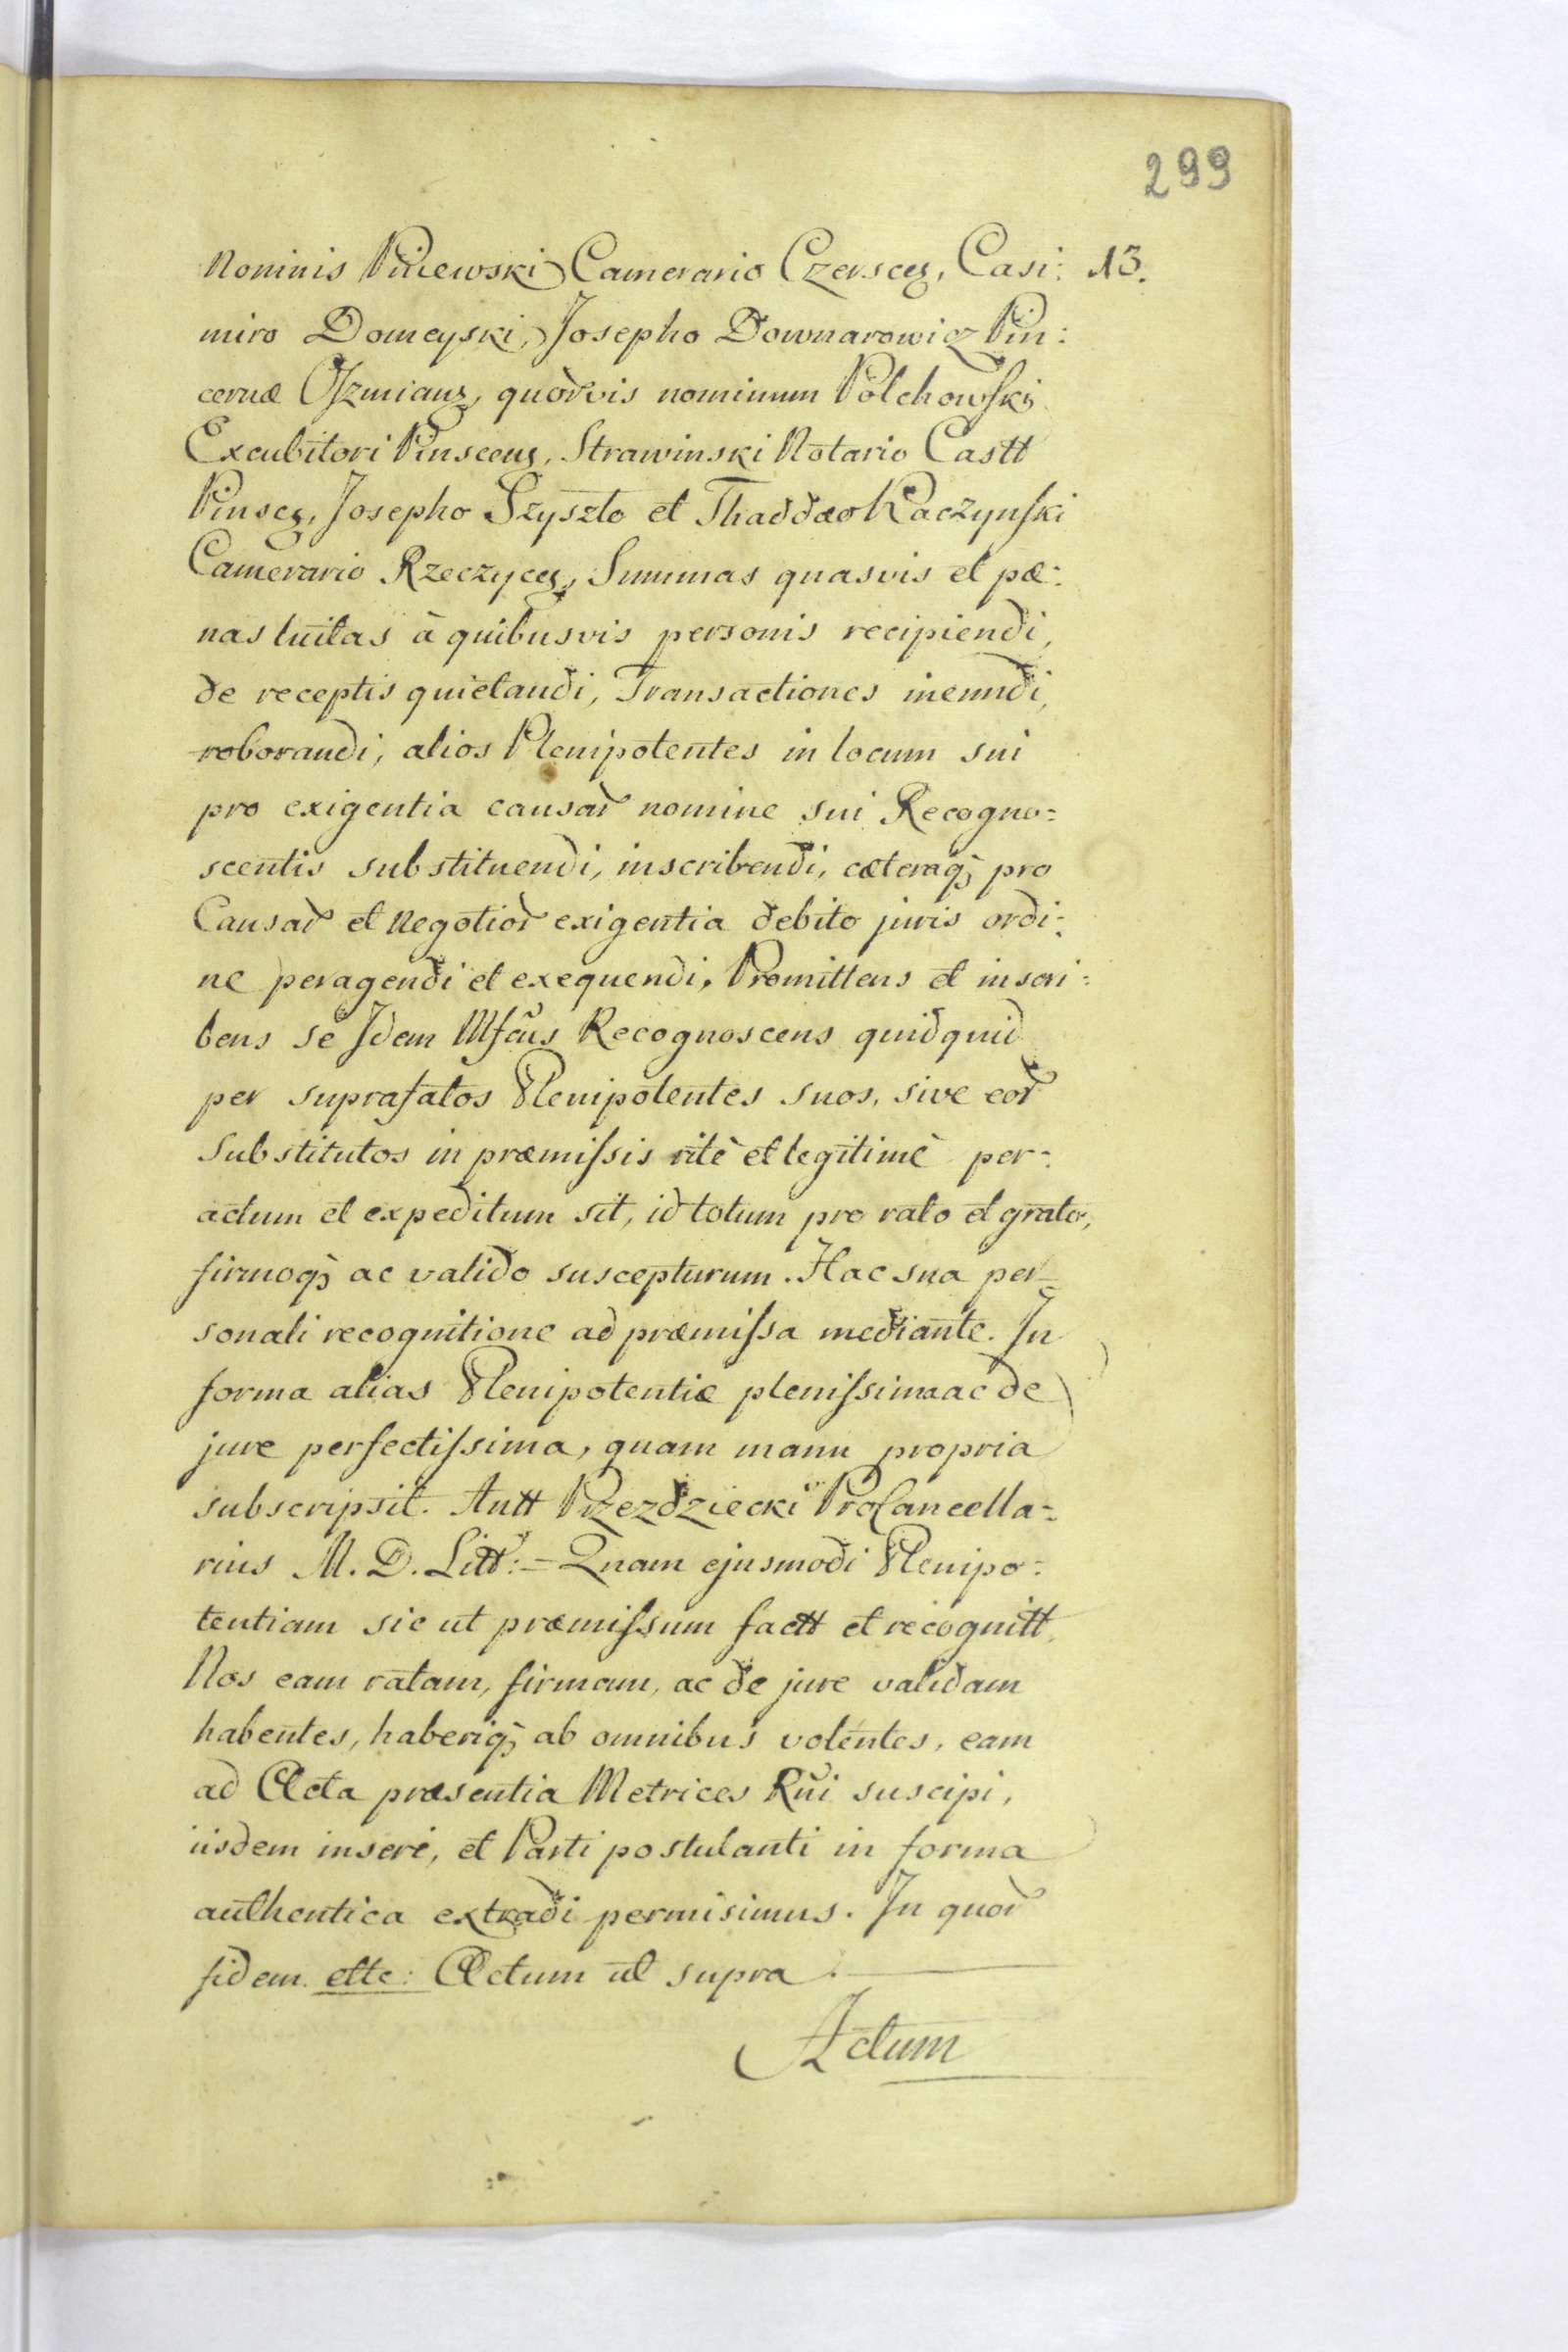 299
Nominis Piniewski Camerario Czersceg, Casi: 13.
miro Domeyski, Josepho Downarowicz Pin:
cernæ Oszmiang, quorvis nominum Polchowski
Excubitori Pinsceng, Strawinski Notario Castt
Pinsceg, Josepho Szyszło et Thaddæo Kaczynski
Camerario Rzeczyceg, Summas quasvis et pæ:
nas luitas à quibusvis personis recipiendi,
de receptis quietandi, Transactiones ineundi,
roborandi, alios Plenipotentes in locum sui
pro exigentia causar nomine sui Recogno=
scentis substituendi, inscribendi, cæteraq; pro
Causar et Negotior exigentia debito juris ordi:
ne peragendi et exequendi, Promittens et inscri:
bens se Idem Mfcus Recognoscens quidquid
per suprafatos Plenipotentes suos, sive eor
Substitutos in præmissis ritè et legitimè per:
actum et expeditum sit, id totum pro rato et grato,
firmoq; ac valido suscepturum. Hac sua per=
sonali recognitione ad præmissa mediante. In
forma alias Plenipotentiæ plenissima ac de
jure perfectissima, quam manu propria
subscripsit. Antt Przezdziecki ProCancella=
rius M. D. Litt: = Quam ejusmodi Plenipo:
tentiam sic ut præmissum factt et recognitt
Nos eam ratam, firmam, ac de jure validam
habentes, haberiq; ab omnibus volentes, eam
ad Acta præsentia Metrices Rni suscipi,
iisdem inseri, et Parti postulanti in forma
authentica extradi permisimus. In quor
fidem ettc: Actum ut supra.
Actum